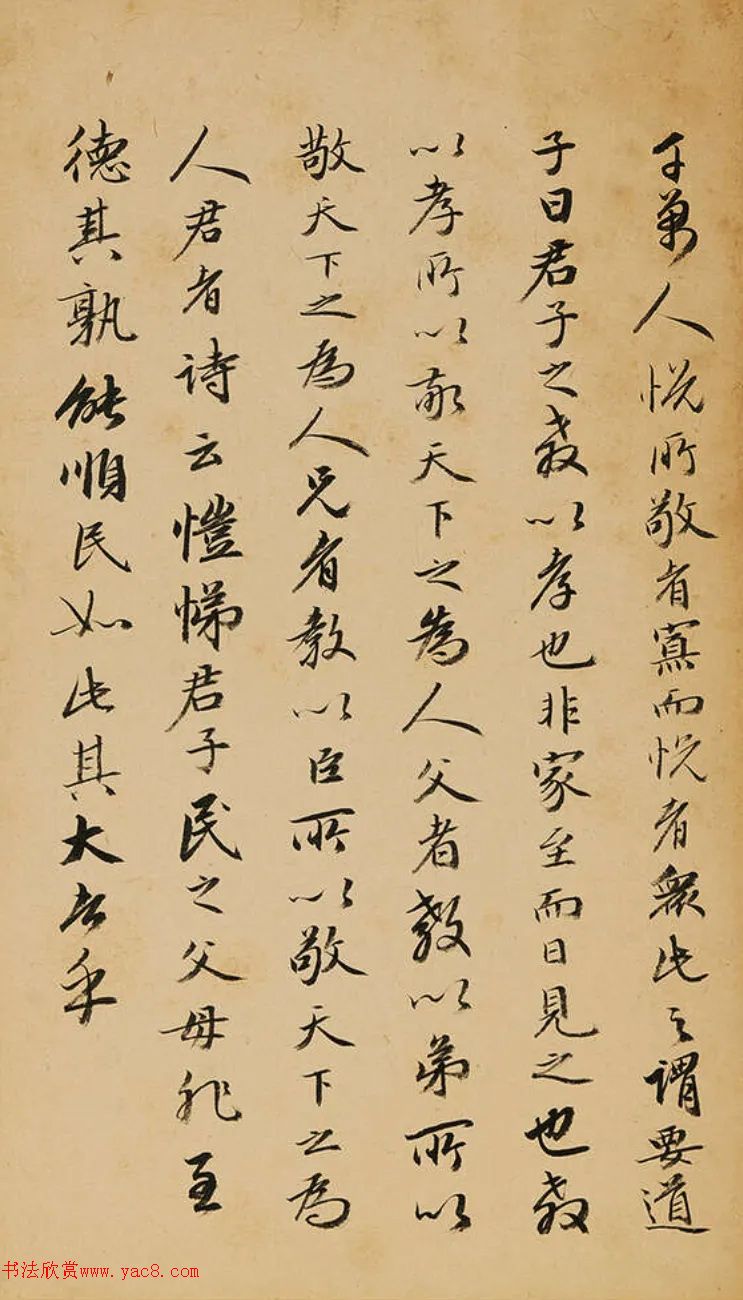 千萬人悅所敬者寡而悅者衆此之謂要道
子曰君子之教以孝也非家至而日見之也教
以孝所以敬天下之為人父者教以弟所以
敬天下之為人兄者教以臣所以敬天下之為
人君者詩云愷悌君子民之父母非至
德其孰能順民如此其大者乎
书法欣赏www.yac8.com